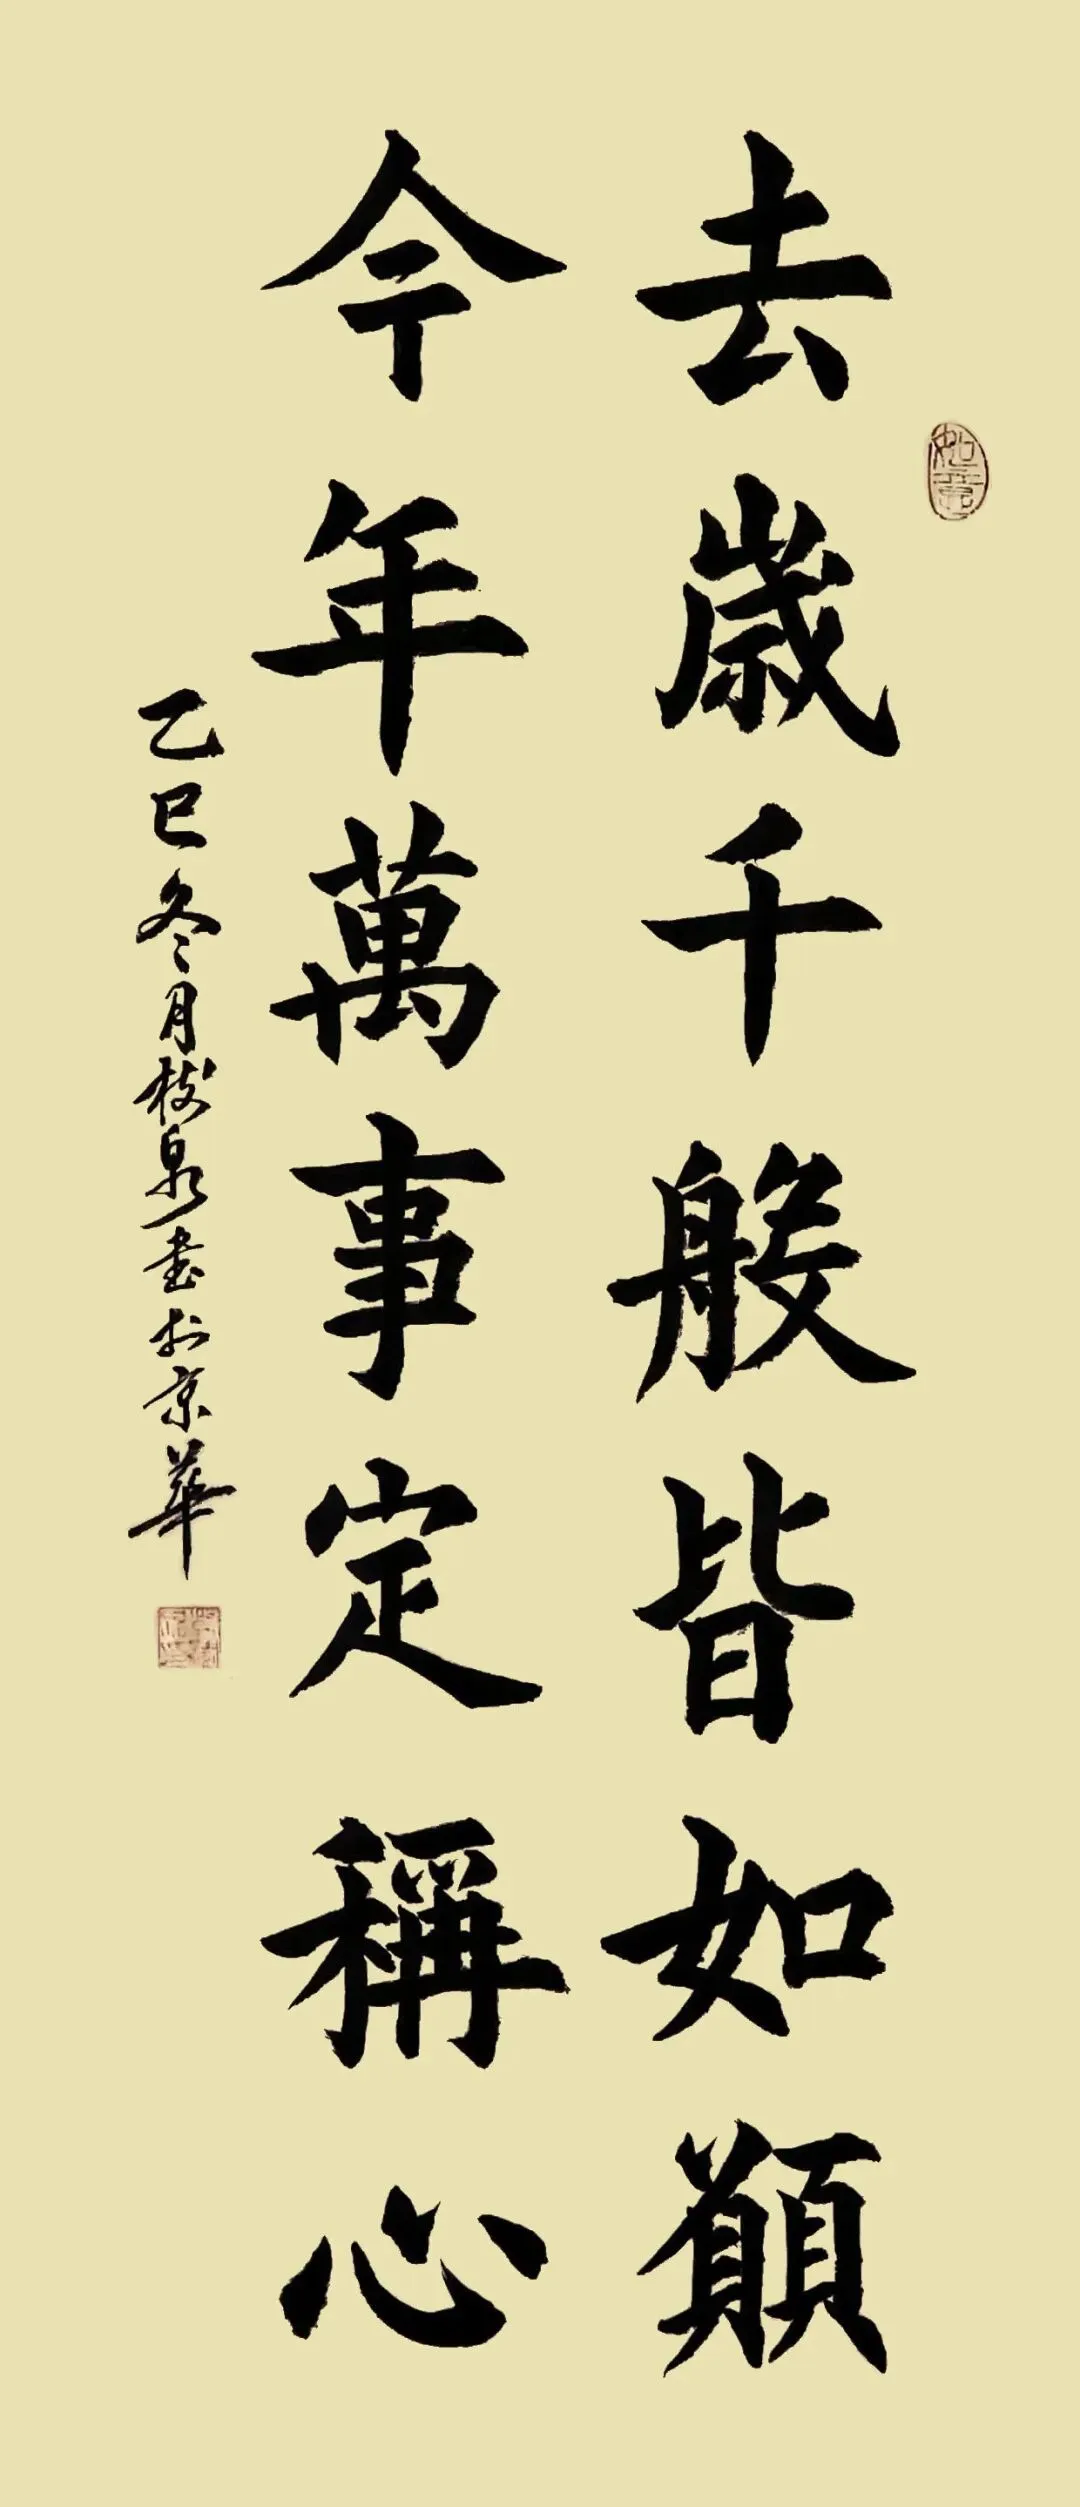 去歲千般皆如願
今年萬事定稱心
乙巳冬月 泉書於京華
如意